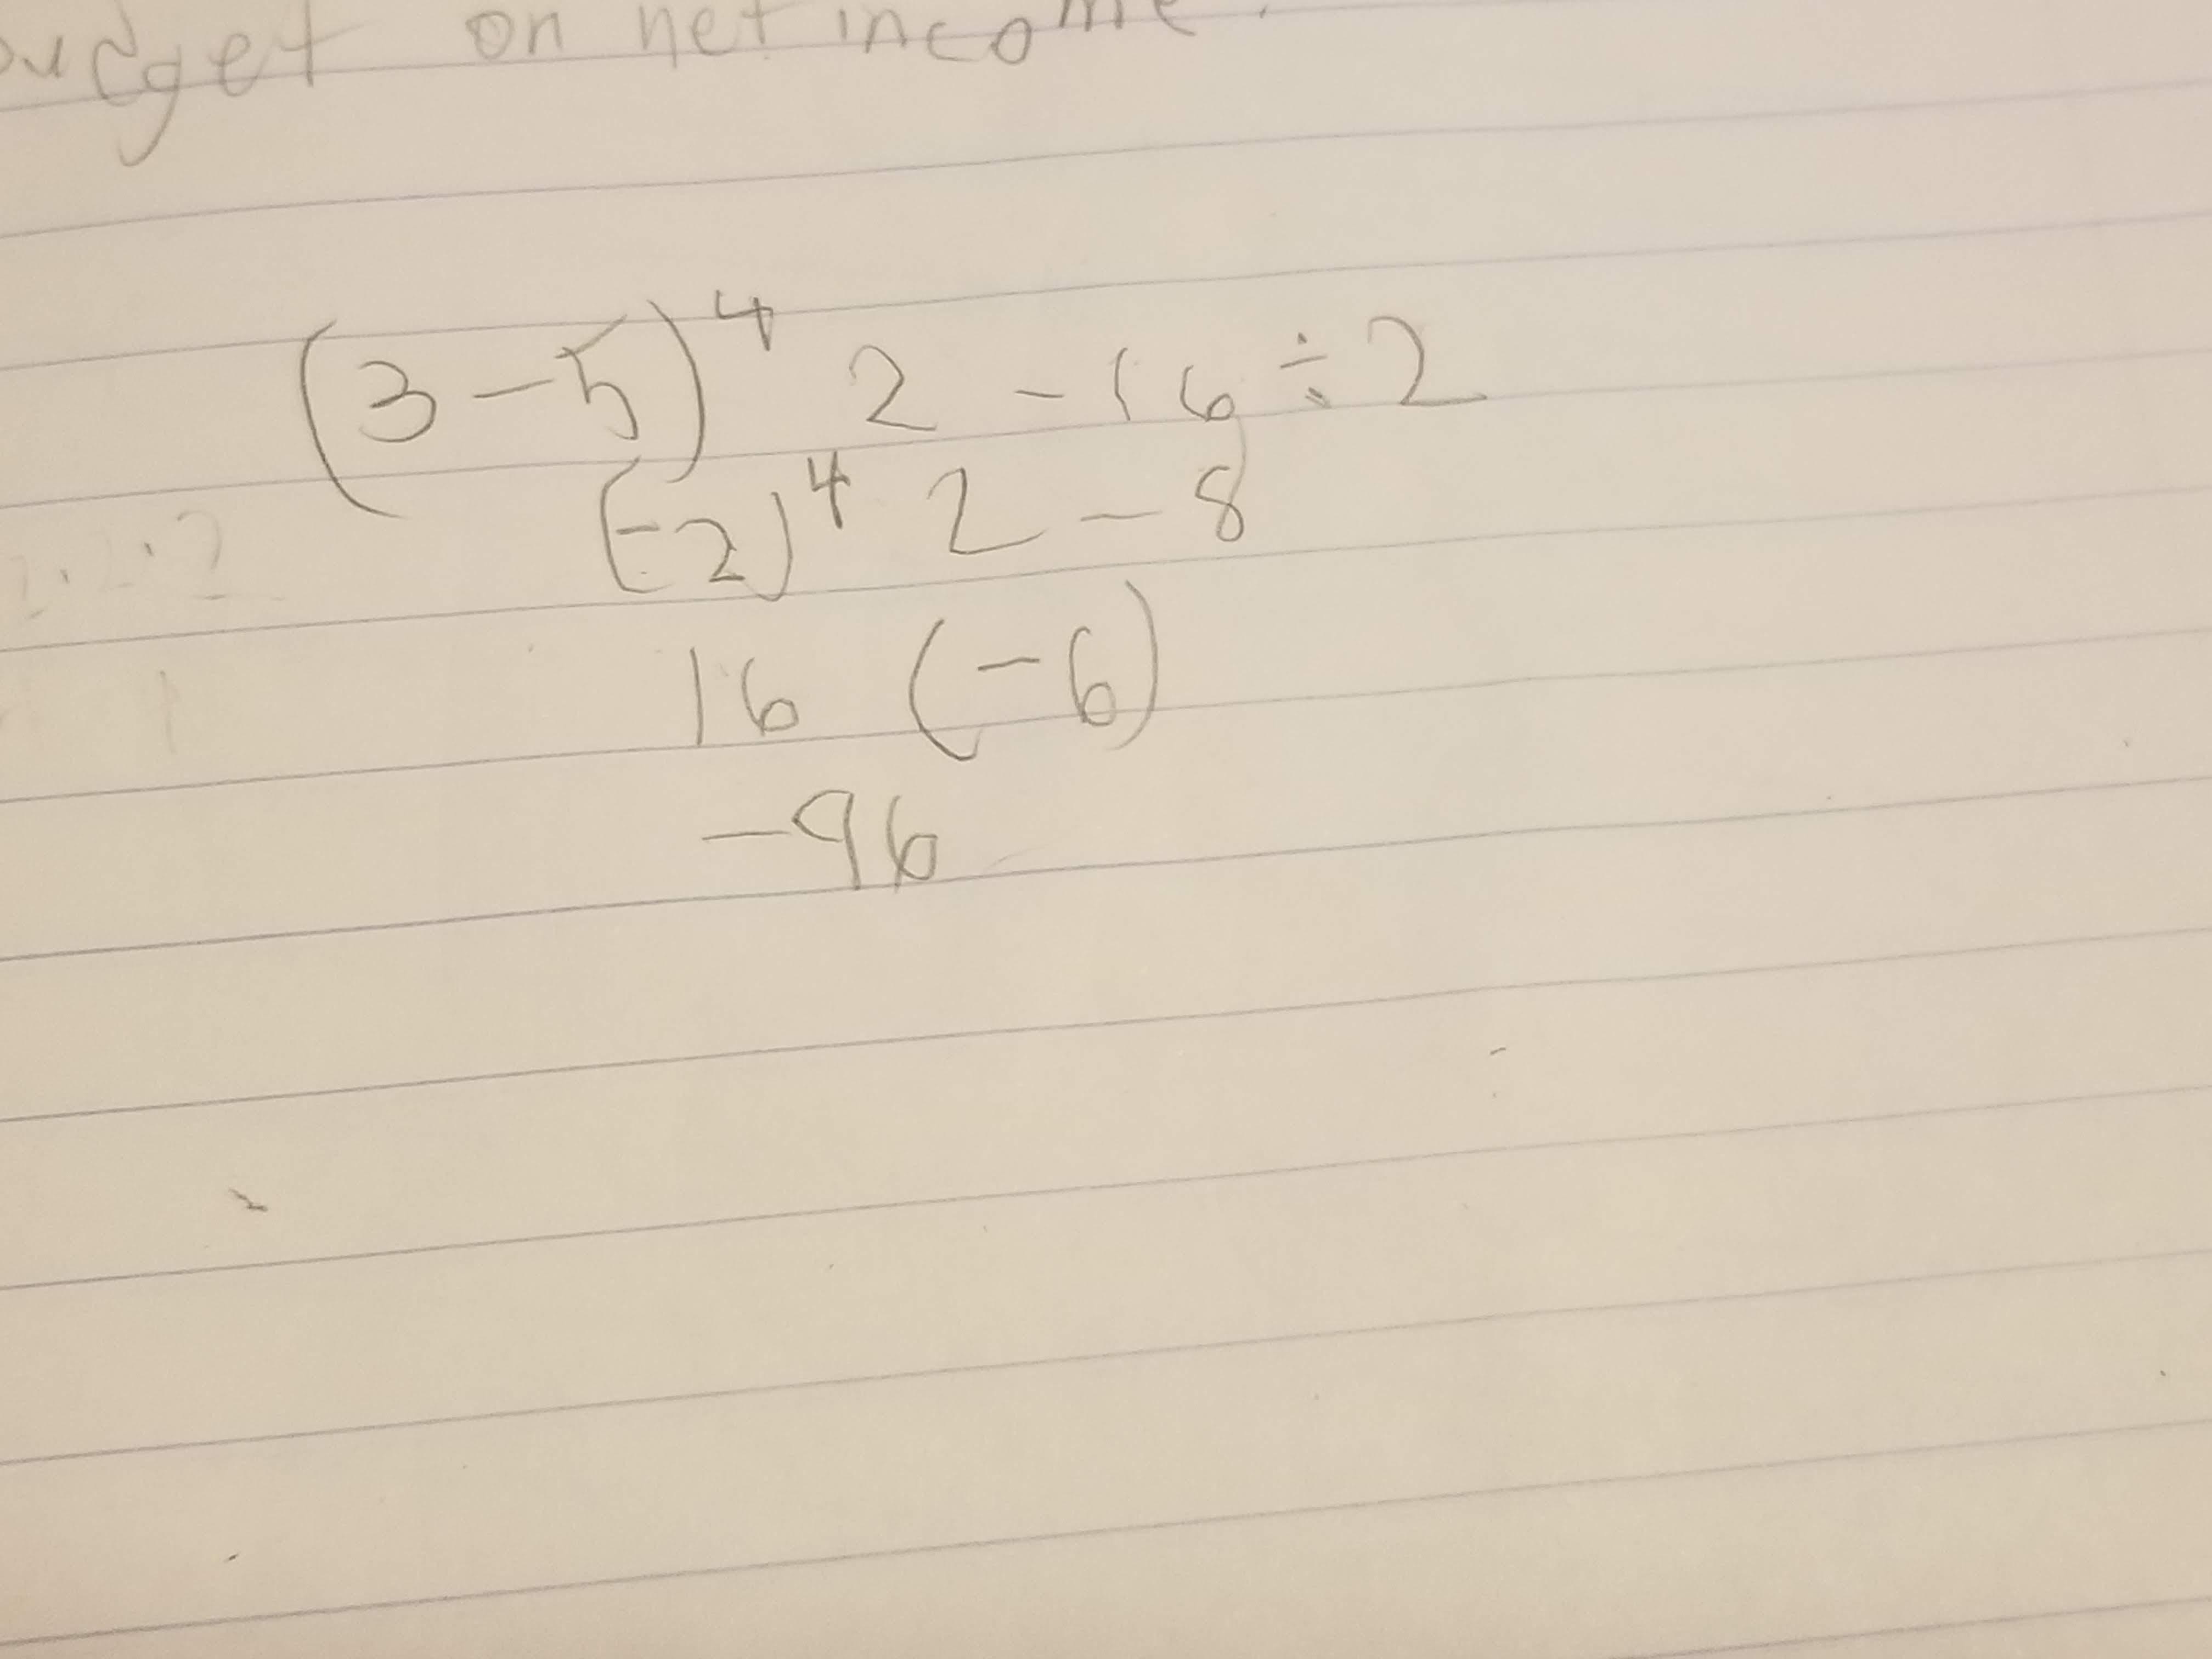 budget on net income.
(3-5)⁴ 2 - 16 ÷ 2
(-2)⁴ 2 - 8
16 (-6)
-96